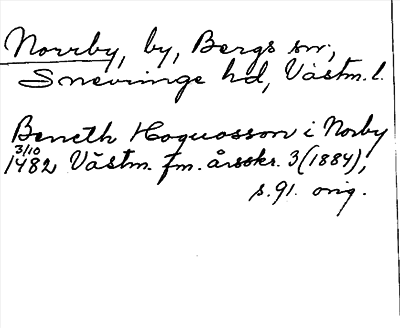 Norrby, by, Bergs sn,
Snevringe hd, Västm. l.
Beneth Hoquosson i Norby
3/10
1482 Västm. fm. årsskr. 3 (1884),
s. 91. orig.